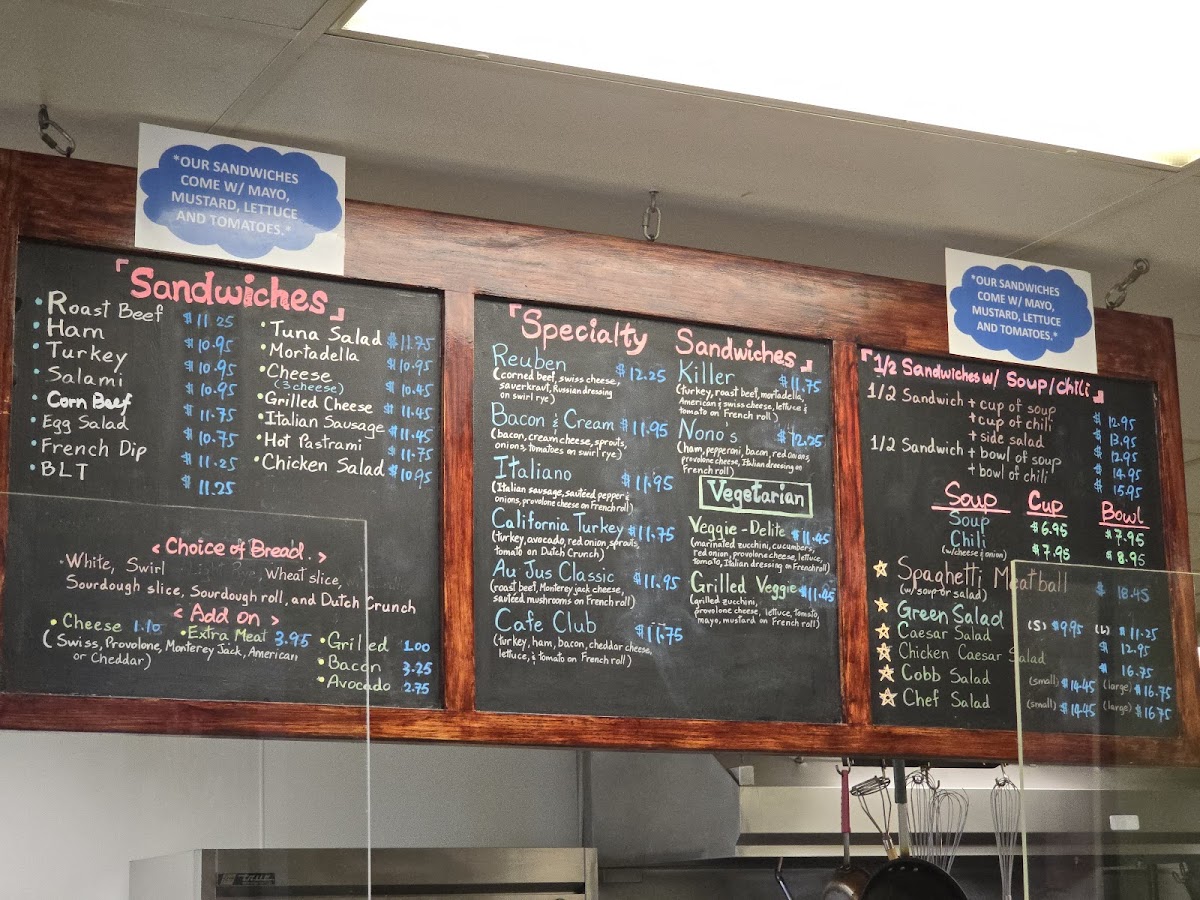 *OUR SANDWICHES
COME W/ MAYO,
MUSTARD, LETTUCE
AND TOMATOES.*
*OUR SANDWICHES
COME W/ MAYO,
MUSTARD, LETTUCE
AND TOMATOES.*
「Sandwiches」
• Roast Beef $11.25
• Ham $10.95
• Turkey $10.95
• Salami $10.95
• Corn Beef $11.75
Egg Salad $10.75
• French Dip $11.25
• BLT $11.25
• Tuna Salad $11.75
• Mortadella $10.95
• Cheese $10.45
(3 cheese)
• Grilled Cheese $11.45
• Italian Sausage $11.45
• Hot Pastrami $11.75
• Chicken Salad $10.95
< Choice of Bread. >
• White, Swirl Wheat slice,
Sourdough slice, Sourdough roll, and Dutch Crunch
< Add on >
• Cheese 1.10
(Swiss, Provolone, Monterey Jack, American
or Cheddar)
• Extra Meat 3.95
• Grilled 1.00
• Bacon 3.25
• Avocado 2.75
「Specialty Sandwiches」
Reuben $12.25
(corned beef, swiss cheese,
saverkraut, Russian dressing
on swirl rye)
Bacon & Cream $11.95
(bacon, cream cheese, sprouts,
onions, tomatoes on swirl rye)
Italiano $11.95
(Italian sausage, sautéed pepper &
onions, provolone cheese on French roll)
California Turkey $11.75
(turkey, avocado, red onion, sprouts,
tomato on Dutch Crunch)
Au Jus Classic $11.95
(roast beef, Monterey jack cheese,
sautéed mushrooms on French roll)
Cafe Club $11.75
(turkey, ham, bacon, cheddar cheese,
lettuce, & tomato on French roll)
Killer $11.75
(turkey, roast beef, mortadella,
American & swiss cheese, lettuce &
tomato on French roll)
Nono's $12.25
(ham, pepperoni, bacon, red onions,
provolone cheese, Italian dressing on
French roll)
Vegetarian
Veggie-Delite $11.45
(marinated zucchini, cucumbers,
red onion, provolone cheese, lettuce,
tomato, Italian dressing on French roll)
Grilled Veggie $11.45
(grilled zucchini,
provolone cheese, lettuce, tomato,
mayo, mustard on French roll)
「1/2 Sandwiches w/ Soup/Chili」
1/2 Sandwich + cup of soup $12.95
+ cup of chili $13.95
+ side salad $12.95
1/2 Sandwich + bowl of soup $14.95
+ bowl of chili $15.95
Soup Cup Bowl
Soup $6.95 $7.95
Chili $7.95 $8.95
(w/ cheese & onion)
Spaghetti Meatball $18.45
(w/ soup or salad)
Green Salad (S) $9.95 (L) $11.25
Caesar Salad $12.95
Chicken Caesar Salad $16.75
Cobb Salad (small) $14.45 (large) $16.75
Chef Salad (small) $14.45 (large) $16.75
true